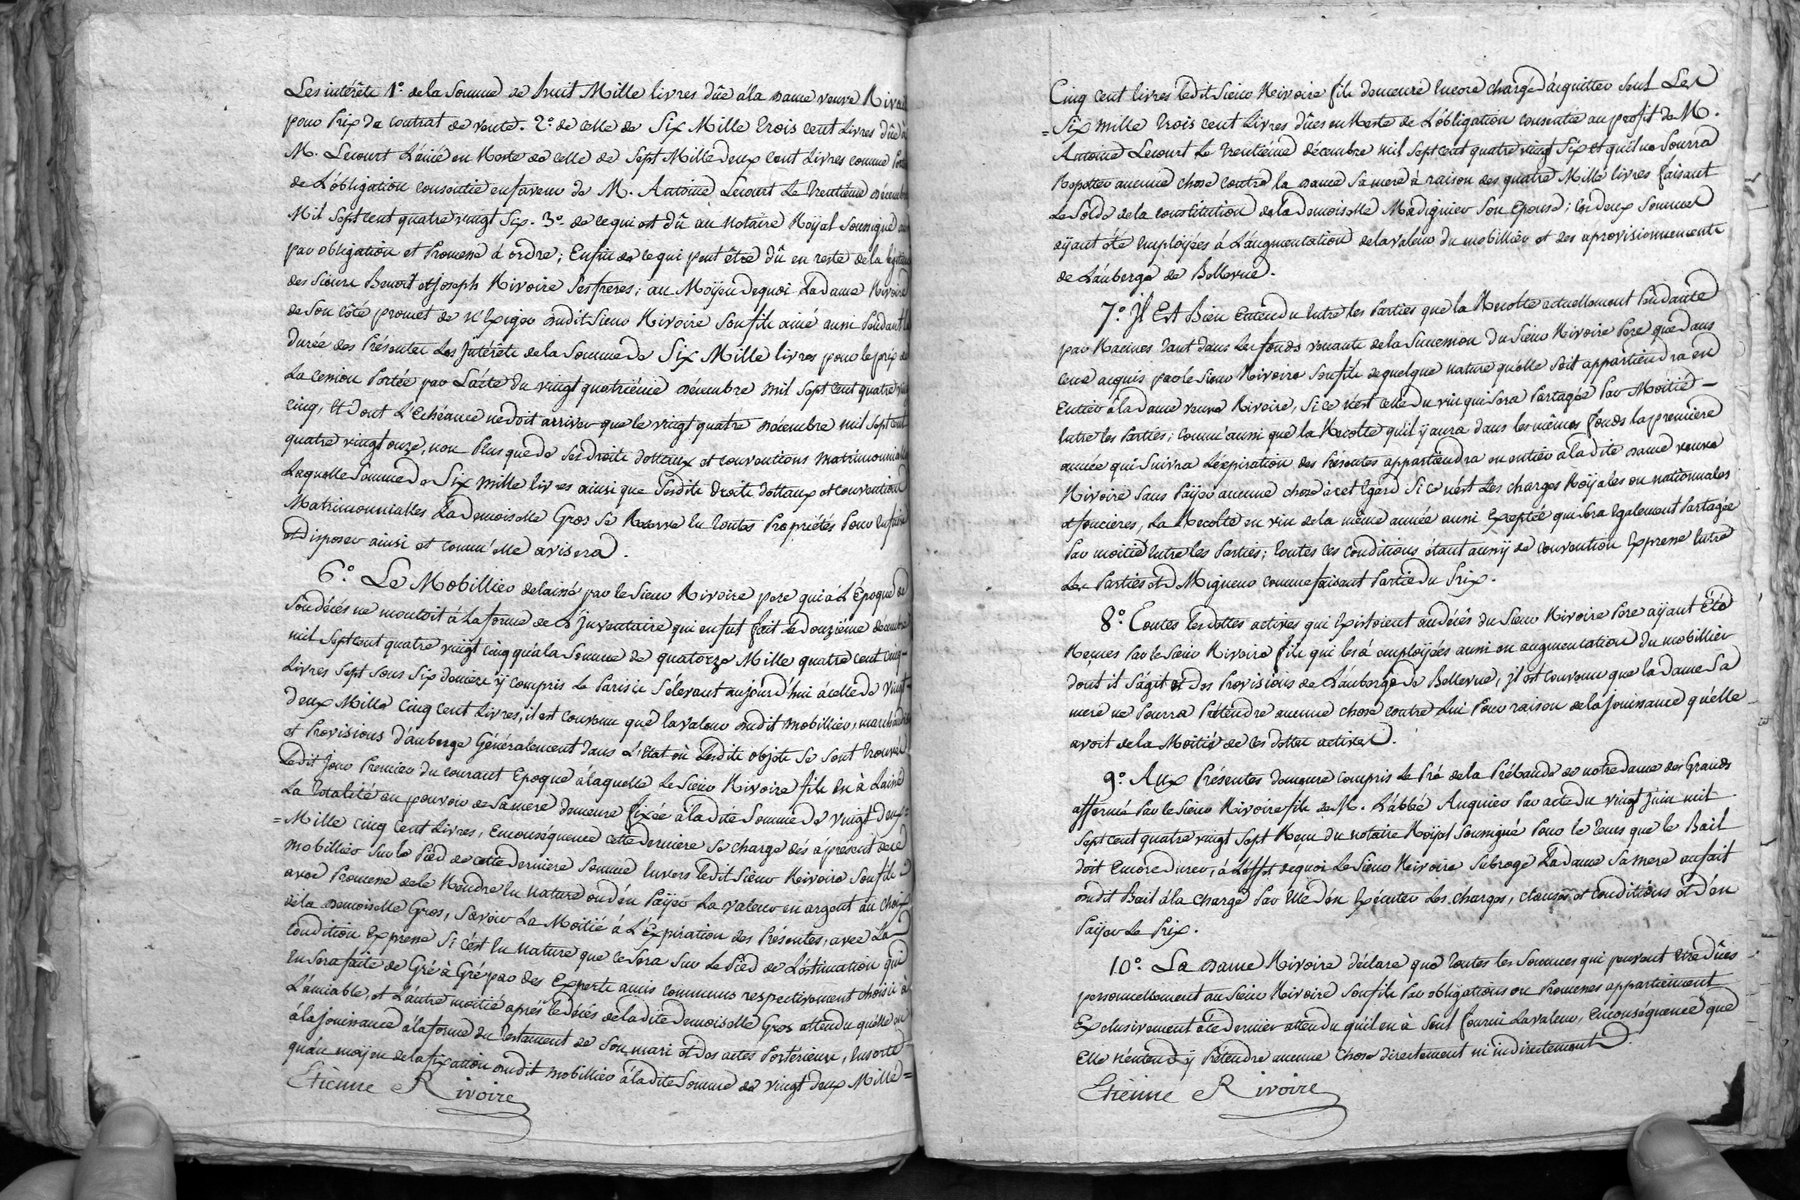 Les intérêts 1º. de la Somme de huit Mille livres dûe à la dame veuve Rival
pour Prix de contrat de vente. 2º. de celle de Six Mille trois cent Livres dûe à
M. Lecourt L'ainé en Reste de celle de Sept Mille deux cent Livres comme
de L'obligation consentie en faveur de M. Antoine Lecourt Le trentième décembre
Mil Sept cent quatre vingt Six. 3º. de ce qui est dû au Notaire Roÿal Soussigné
par obligation et Promesse à ordre; Enfin de ce qui peut être dû en reste de la
des Sieurs Benoit et Joseph Rivoire Ses freres; au Moÿen dequoi La Dame Rivoire
de Son côté promet de n'Exiger dudit Sieur Rivoire Son fils ainé aussi Pendant la
durée des Présentes Les Intérêts de la Somme de Six Mille livres pour le prix de
La cession Portée par L'acte du vingt quatrième décembre mil Sept cent quatre vingt
cinq, Et dont L'Echéance ne doit arriver que le vingt quatre décembre mil Sept cent
quatre vingt onze, non Plus que de Ses droits dottaux et conventions matrimonialles
Laquelle Somme de Six Mille livres ainsi que Sesdits droits dottaux et conventions
Matrimonnialles La Demoiselle Gros Se Réserve En toutes Propriétés Pour En faire
et disposer ainsi et comm'elle avisera.
6º. Le Mobillier delaissé par le Sieur Rivoire pere qui à L'Époque de
Son décès ne montoit à la forme de L'Inventaire qui en fut fait Le Douzième décembre
mil Sept cent quatre vingt cinq qu'à la Somme de quatorze Mille quatre cent cinq
Livres Sept Sous Six deniers ÿ compris Le S'élevant aujourd'hui à celle de vingt
deux Mille cinq cent Livres, il est convenu que la valeur dudit mobillier, marchandises
et Provisions d'auberge Généralement dans L'Etat où Lesdits objets Se Sont trouvés
Ledit Jour Premier du courant Epoque à laquelle Le Sieur Rivoire fils En à Laissé
La totalité au pouvoir de Sa mere demeure fixée à la dite Somme de vingt deux=
=Mille cinq cent Livres, En conséquence cette derniere Se charge dès à présent dudit
mobillier Sur le Pied de cette derniere Somme Envers ledit Sieur Rivoire Son fils
avec Promesse de le Rendre En nature ou d'En Païer La valeur en argent au choix
de la Demoiselle Gros, Savoir La Moitié à L'Expiration des Présentes, avec La
condition Expresse Si c'est En nature que ce Sera Sur Le Pied de L'estimation qui
En Sera faite de Gré à Gré par des Experts amis communs respectivement choisis à
L'amiable, et L'autre moitié après le décès de la dite Demoiselle Gros attendu qu'elle en
à la jouissance à la forme du testament de Son mari et des actes Postérieurs, Ensorte
qu'au moÿen de la fixation dudit mobillier à la dite Somme de vingt deux Mille=
Etienne Rivoire
Cinq cent livres ledit Sieur Rivoire fils demeure Encore chargé d'acquitter Seul Les
=Six mille trois cent Livres dûes en Reste de L'obligation consentie au profit de M.
Antoine Lecourt Le trentième décembre mil Sept cent quatre vingt Six et qu'il ne Pourra
Répetter aucune chose contre la dame Sa mere à raison des quatre Mille livres faisant
Le Solde de la constitution de la Demoiselle Madignier Son Epouse; ces deux Sommes
aÿant été Employées à L'augmentation de la valeur du mobillier et des aprovisionnements
de L'auberge de Bellevue.
7º. Il Est Bien Entendu Entre les Parties que la Récolte actuellement Pendante
par Racines tant dans Les fonds venants de la Succession du Sieur Rivoire Pere que dans
ceux acquis par le Sieur Rivoire Son fils de quelque nature qu'elle Soit appartiendra en
Entier à la Dame veuve Rivoire, Si ce n'est celle du vin qui Sera Partagée Par Moitié -
Entre les Parties; comm'aussi que la Récolte qu'il ÿ aura dans les mêmes fonds la premiere
année qui Suivra L'expiration des Présentes appartiendra en entier à la dite Dame veuve
Rivoire Sans Païer aucune chose à cet Egard Si ce n'est Les charges Roÿales ou nationnales
et foncières, La Récolte en vin de la même année aussi Exeptée qui Sera Egalement Partagée
Par moitié Entre les Parties; toutes ces conditions étant aussÿ de convention Expresse Entre
Les Parties et de Rigueur comme faisant Partie du Prix.
8º. Toutes Les dettes actives qui Existoient au décès du Sieur Rivoire Pere aÿant Eté
Reçues Par le Sieur Rivoire fils qui les à employées aussi en augmentation du mobillier
dont il S'agit et des Provisions de L'auberge de Bellevue, il est convenu que la dame Sa
mere ne Pourra Prétendre aucune chose contre Lui Pour raison de la jouissance qu'elle
avoit de la Moitié de ces dettes actives.
9º. Aux Présentes demeure compris Le Pré de la Prébande de notre dame des Grands
affermé Par le Sieur Rivoire fils de M. L'abbé Anguier Par acte du vingt juin mil
Sept cent quatre vingt Sept Reçu du notaire Roÿal Soussigné Pour le tems que le Bail
doit Encore durer, à L'effet dequoi Le Sieur Rivoire Subroge La dame Sa mere au fait
dudit Bail à la charge Par Elle d'En Exécuter Les charges, clauses et conditions et d'en
Païer Le Prix.
10º. La Dame Rivoire déclare que toutes les Sommes qui peuvent Etre dûes
personnellement au Sieur Rivoire Son fils Par obligations ou Promesses appartiennent
Exclusivement à ce Dernier attendu qu'il en à Seul fourni La valeur, En conséquence que
Elle n'entend ÿ Prétendre aucune chose directement ni indirectement.
Etienne Rivoire